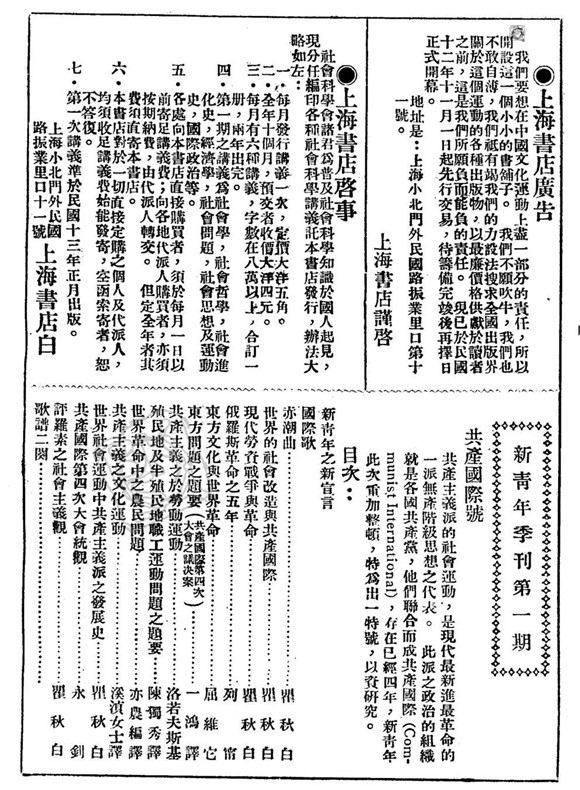 ●上海書店廣告
我們要想在中國文化運動上盡一部分的責任，所以
開設這一個小小的書舖子。　我們不願吹牛，我們也
不敢自薄，我們祇有竭我們的力設法搜求全國出版界
關於這個運動的各種出版物，以最廉價格供獻於讀者
之前，這是我們所願負而能負的責任。　現已於民國
十二年十一月一日起先行交易，待籌備完竣後再擇日
正式開幕。
地址是：上海小北門外民國路振業里口第十
一號。
上海書店謹啓
●上海書店啓事
社會科學會諸君為普及社會科學知識於國人起見，
現分任編印各種社會科學講義託本書店發行，辦法大
略如左：
一．每月發行講義一次，定價大洋五角。
二．全年十個月，預交者收價大洋四元。
三．每月有六種講義，字數在八萬以上，合訂一
册，兩年出完。
四．第一期之講義為社會學，社會哲學，社會進
化史，經濟學，社會問題，社會思想及運動
史，國際政治等。
五．各處向本書店直接購買者，須於每月一日以
前寄足講義費；向各地代派人購買者，亦須
按期納費，由代派人轉交。　但定全年者其
費須直寄本書店。
六．本書店對於一切直接定購之個人及代派人，
均須收足講義費始能發寄，空函案寄者，恕
不答復。
七．第一次講義準於民國十三年正月出版。
上海小北門外民國
路振業里口十一號
上海書店白
新青年季刊第一期
共產國際號
共產主義派的社會運動，是現代最新進最革命的
一派無產階級思想之代表。　此派之政治的組織
就是各國共產黨，他們聯合而成共產國際（Com-
munist International），存在已經四年，新青年
此次重加整頓，特為出一特號，以資研究。
目次：
新青年之新宣言
國際歌
赤潮曲……瞿秋白
世界的社會改造與共產國際……瞿秋白
現代勞資戰爭與革命……瞿秋白
俄羅斯革命之五年……列甯
東方文化與世界革命……屈維它
東方問題之題要（共產國際第四次大會之議决案）……一鴻譯
共產主義之於勞動運動……洛若夫斯基
殖民地及半殖民地職工運動問題之題要……陳獨秀譯
世界革命中之農民問題……亦農編譯
共產主義之文化運動……溪濵女士譯
世界社會運動中共產主義派之發展史……瞿秋白
共產國際第四次大會統觀……永釗
評羅素之社會主義觀……瞿秋白
歌譜二闋